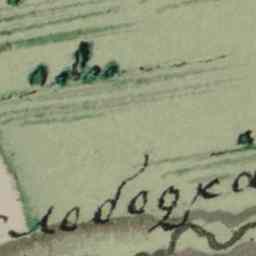 слободка